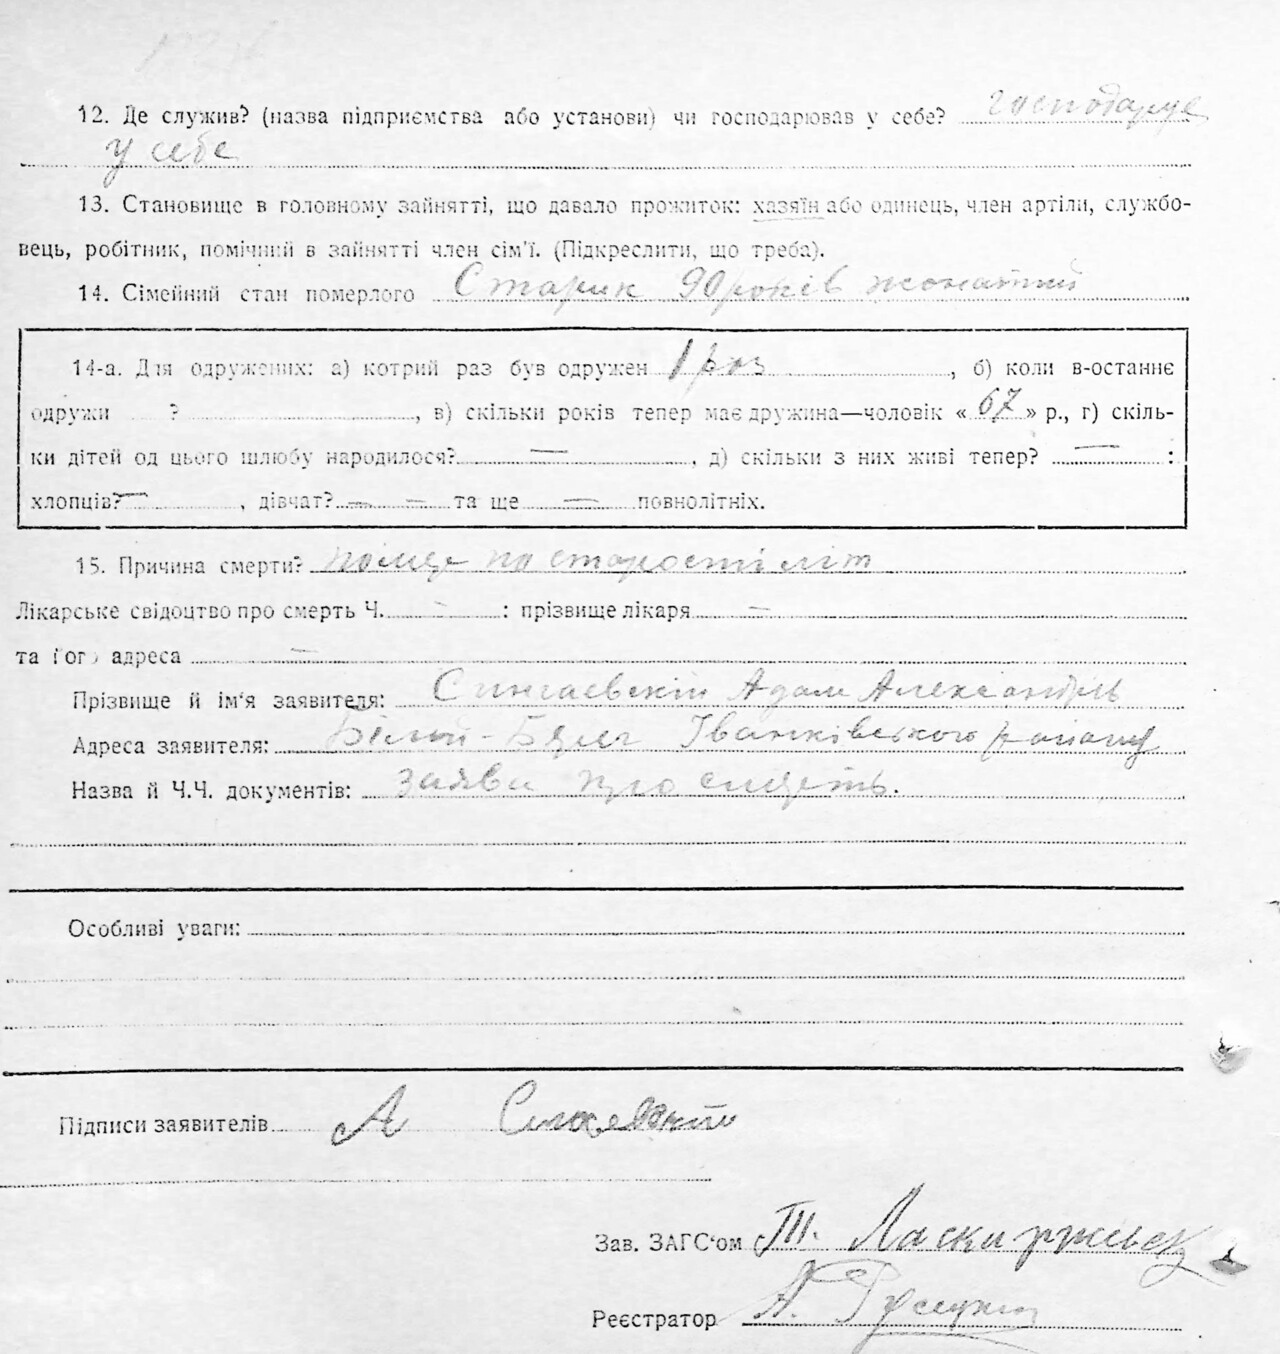 12. Де служив? (назва підприємства або установи) чи господарював у себе? господарує
у себе
13. Становище в головному зайнятті, що давало прожиток: хазяїн або одинець, член артіли, службо-
вець, робітник, помічний в зайнятті член сім'ї. (Підкреслити, що треба).
14. Сімейний стан померлого Старик 90 років жонатий
14-а. Для одружених: а) котрий раз був одружен 1 раз, б) коли в-останнє
одружи ?, в) скільки років тепер має дружина—чоловік «67» р., г) скіль-
ки дітей од цього шлюбу народилося? —, д) скільки з них живі тепер? — :
хлопців? —, дівчат? — — та ще — повнолітніх.
15. Причина смерти? помер по старості літ
Лікарське свідоцтво про смерть Ч. - : прізвище лікаря —
та його адреса —
Прізвище й ім'я заявителя: Сингаевский Адам Александрів
Адреса заявителя: Іванківського району
Назва й Ч.Ч. документів: Заява про смерть.
Особливі уваги:
Підписи заявителів А
Зав. ЗАГС'ом
Реєстратор А.